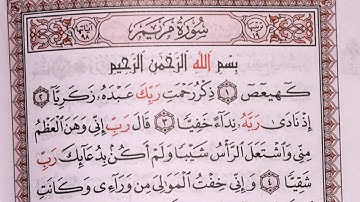 سُورَةُ مَرْيَمَ
بِسْمِ اللَّهِ الرَّحْمَٰنِ الرَّحِيمِ
كٓهيعٓصٓ ١ ذِكْرُ رَحْمَتِ رَبِّكَ عَبْدَهُۥ زَكَرِيَّآ ٢
إِذْ نَادَىٰ رَبَّهُۥ نِدَآءً خَفِيًّا ٣ قَالَ رَبِّ إِنِّى وَهَنَ ٱلْعَظْمُ
مِنِّى وَٱشْتَعَلَ ٱلرَّأْسُ شَيْبًا وَلَمْ أَكُنۢ بِدُعَآئِكَ رَبِّ
شَقِيًّا ٤ وَإِنِّى خِفْتُ ٱلْمَوَٰلِىَ مِن وَرَآءِى وَكَانَتِ